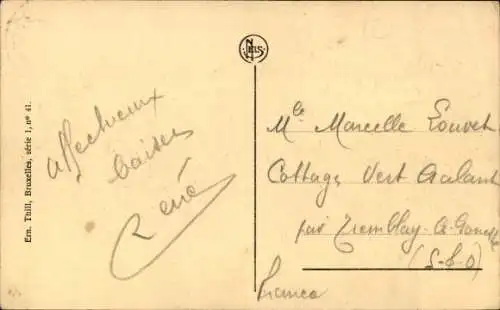 Ern. Thill, Bruxelles, série 1, nº 41.
NELS
affectueux
baisers
René
Mle Marcelle Louvet
Cottage Vert Galant
par Tremblay-le-Gonesse
(S-&-O)
France